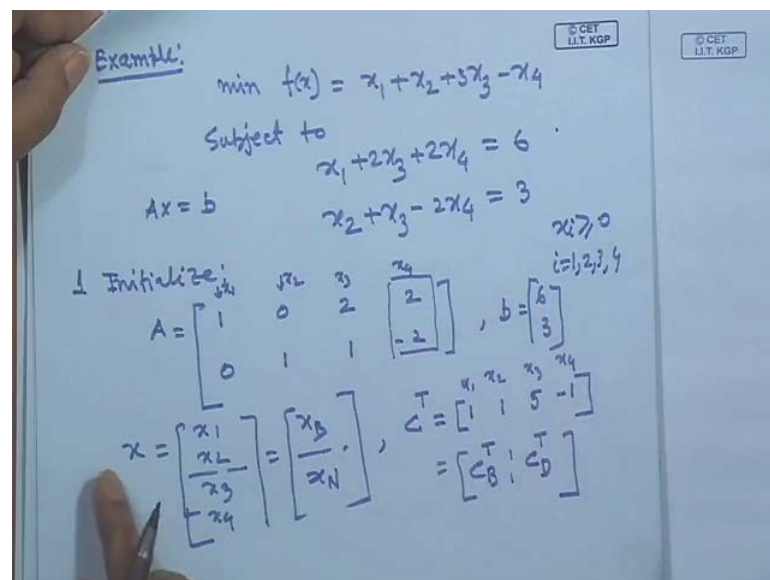 © CET
I.I.T. KGP
© CET
I.I.T. KGP
Example:
min f(x) = x₁ + x₂ + 5x₃ − x₄
Subject to
x₁ + 2x₃ + 2x₄ = 6
Ax = b
x₂ + x₃ − 2x₄ = 3
xᵢ ≥ 0
i = 1, 2, 3, 4
1 Initialize:
↓x₁ ↓x₂ x₃ x₄
A = [1 0 2 2
0 1 1 -2], b = [6
3]
x₁ x₂ x₃ x₄
Cᵀ = [1 1 5 -1]
x = [x₁
x₂
x₃
x₄] = [x_B
x_N],
= [C_Bᵀ ¦ C_Dᵀ]